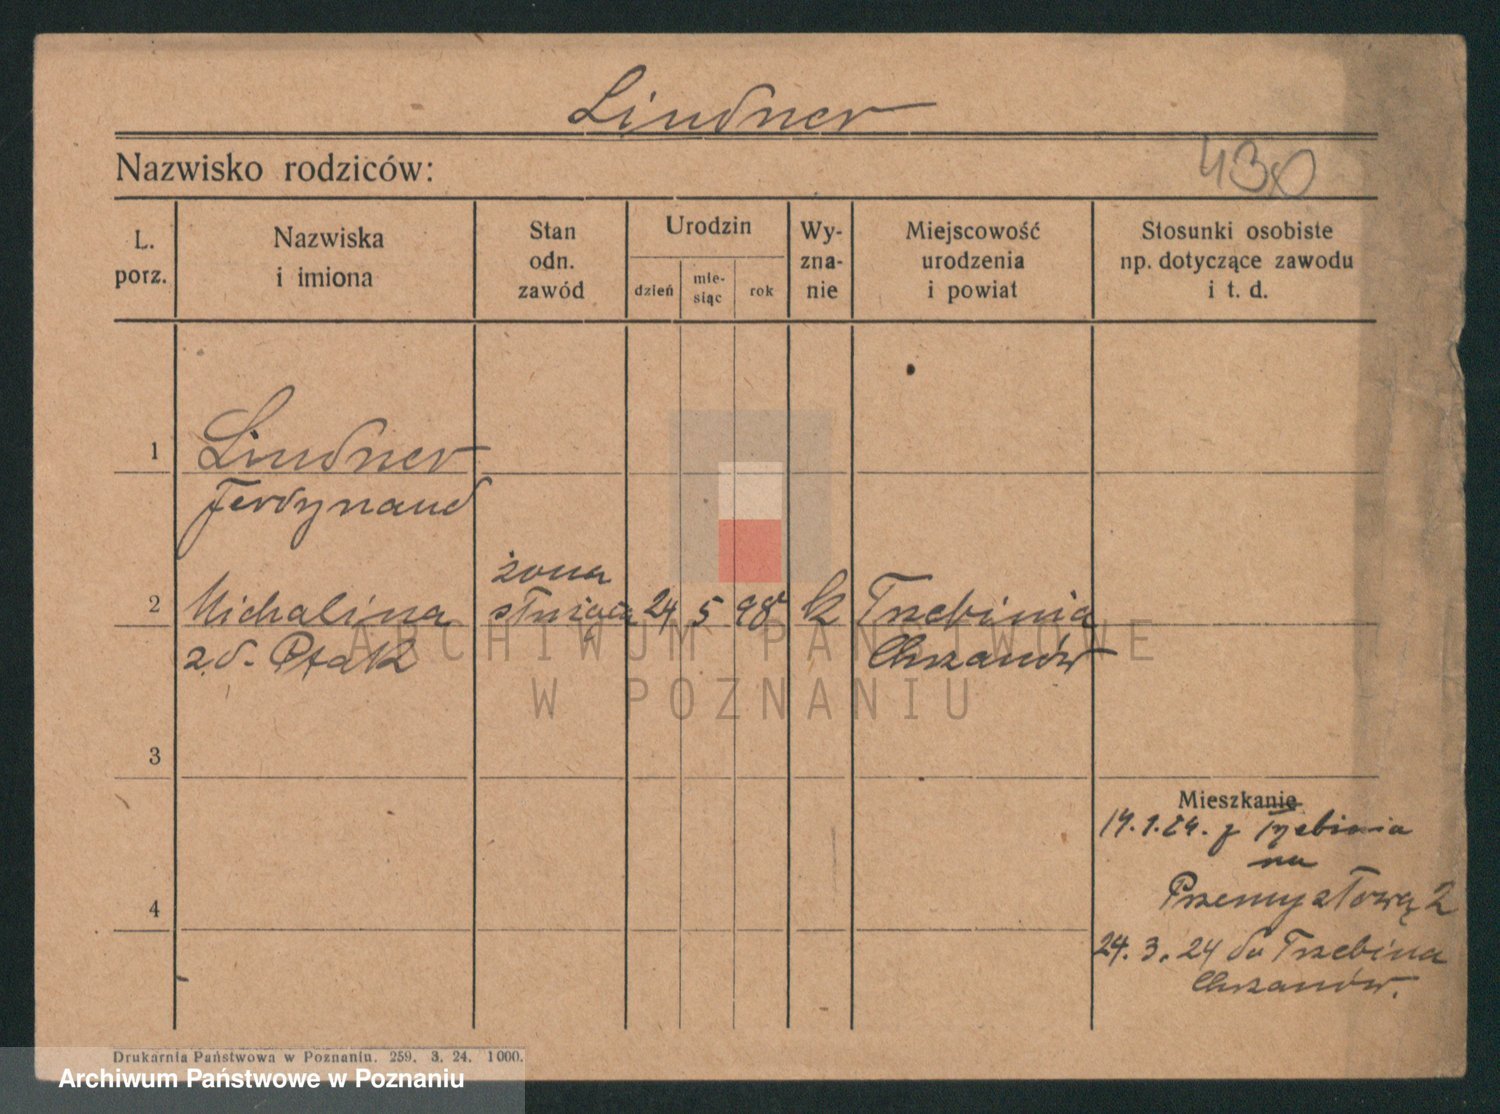 Lindner
Nazwisko rodziców:
430
L. porz.
Nazwiska i imiona
Stan odn. zawód
Urodzin
dzień
mie-
siąc
rok
Wy-
zna-
nie
Miejscowość
urodzenia
i powiat
Stosunki osobiste
np. dotyczące zawodu
i t. d.
1
Lindner
Ferdynand
żona
2 Michalina służąca 24 5 98 k Trzebinia
z d. Ptak Chrzanów
3
Mieszkanie
14.1.24. z Trzebinia
na
Przemysłową 2
4
24. 3. 24 do Trzebina
Chrzanów.
Drukarnia Państwowa w Poznaniu. 259. 3. 24. 1000.
ARCHIWUM PAŃSTWOWE
W POZNANIU
Archiwum Państwowe w Poznaniu